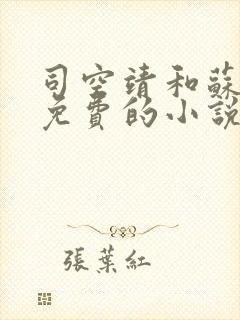 司空靖和蘇
免費的小說
張葉紅